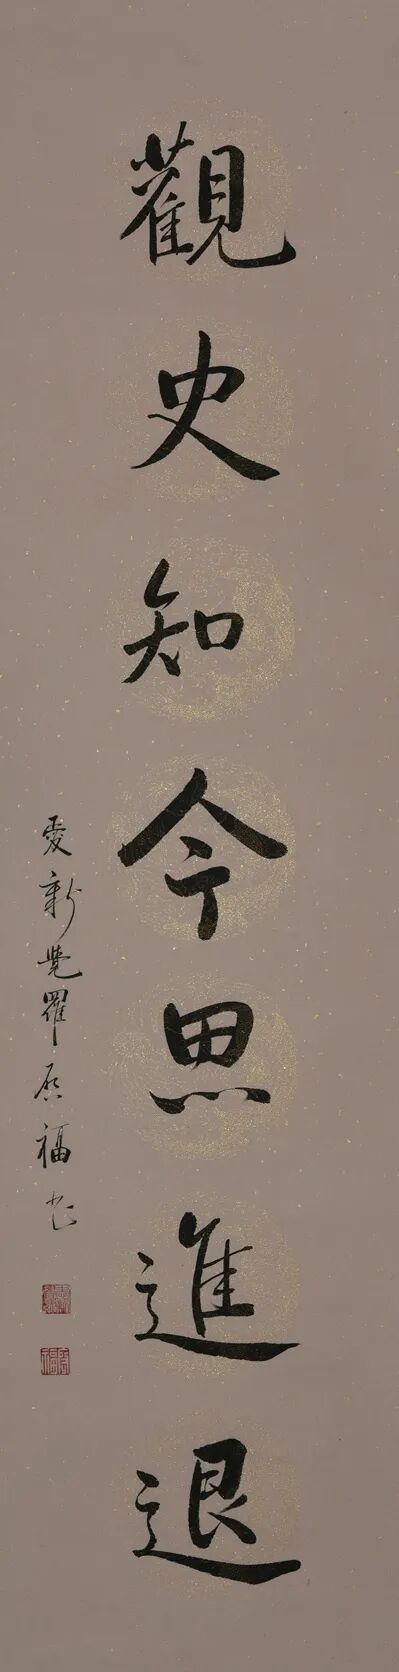 觀史知今思進退
愛新覺羅啟福書